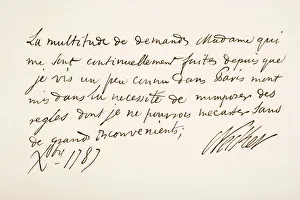 La multitude de demandes Madame qui
me sont continuellement faites depuis que
je vis un peu connu dans Paris m'ont
mis dans la necessité de m'imposer des
regles dont je ne pourrois m'ecarter sans
de grands inconvenients;
Xbre 1787